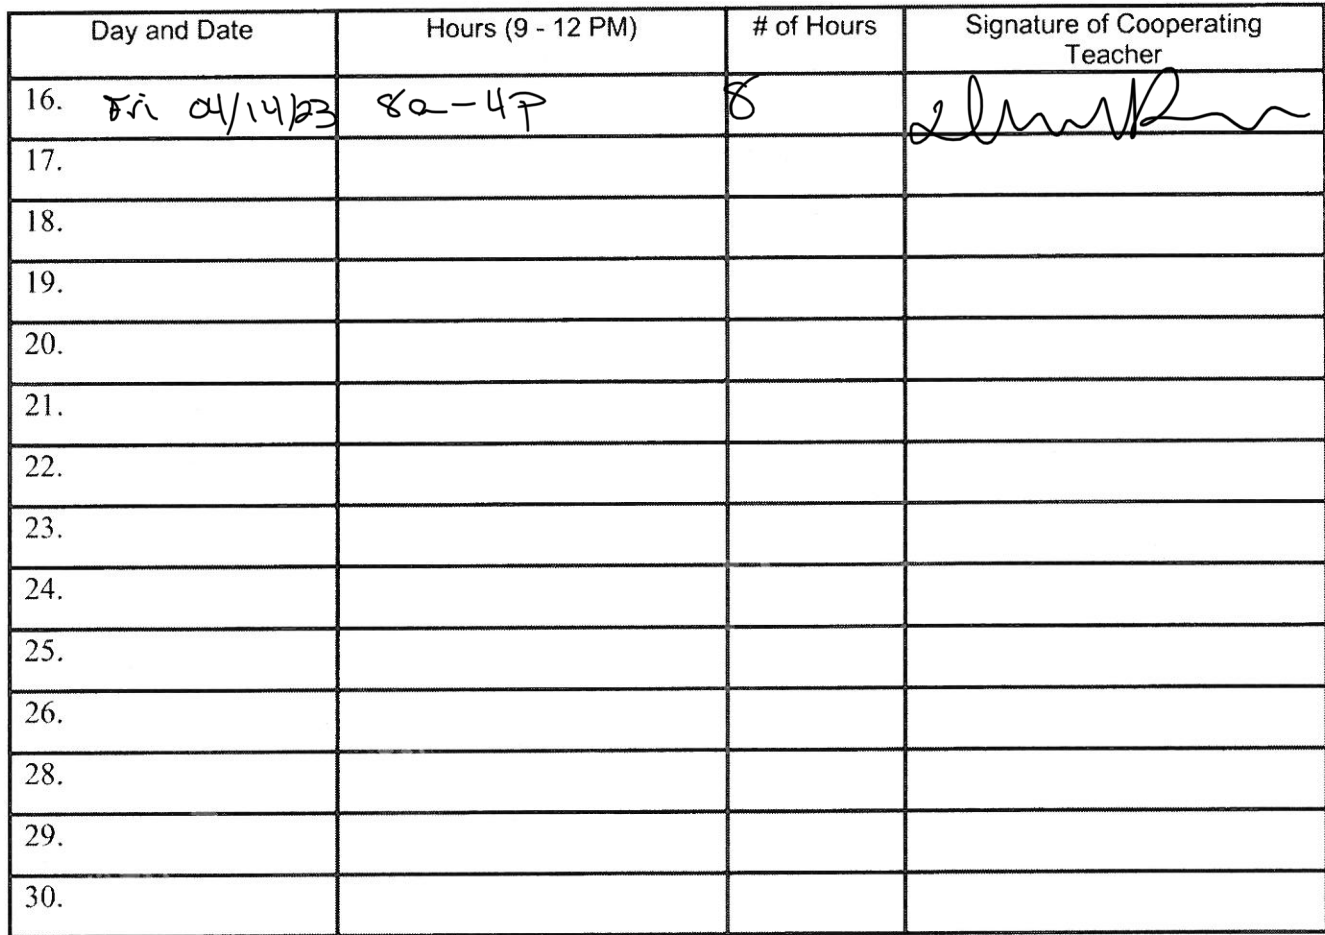 Day and Date Hours (9 - 12 PM) # of Hours Signature of Cooperating
Teacher
16. Fri 04/14/23 8a-4p 8
17.
18.
19.
20.
21.
22.
23.
24.
25.
26.
28.
29.
30.